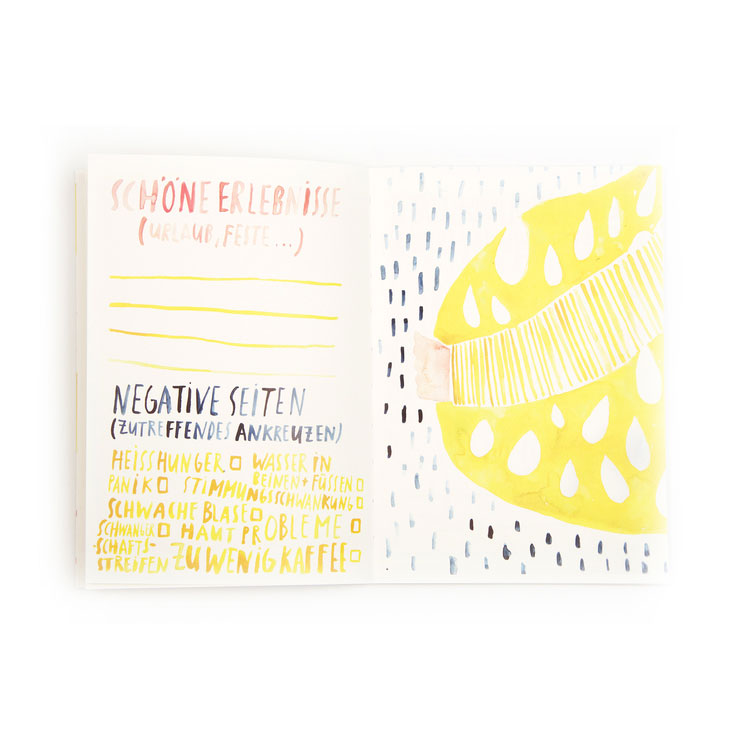 SCHÖNE ERLEBNISSE
(URLAUB, FESTE...)
NEGATIVE SEITEN
(ZUTREFFENDES ANKREUZEN)
HEISSHUNGER
WASSER IN
BEINEN + FÜSSEN
PANIK
STIMMUNGSSCHWANKUNG
SCHWACHE BLASE
SCHWANGER
-SCHAFTS-
STREIFEN
HAUTPROBLEME
ZU WENIG KAFFEE